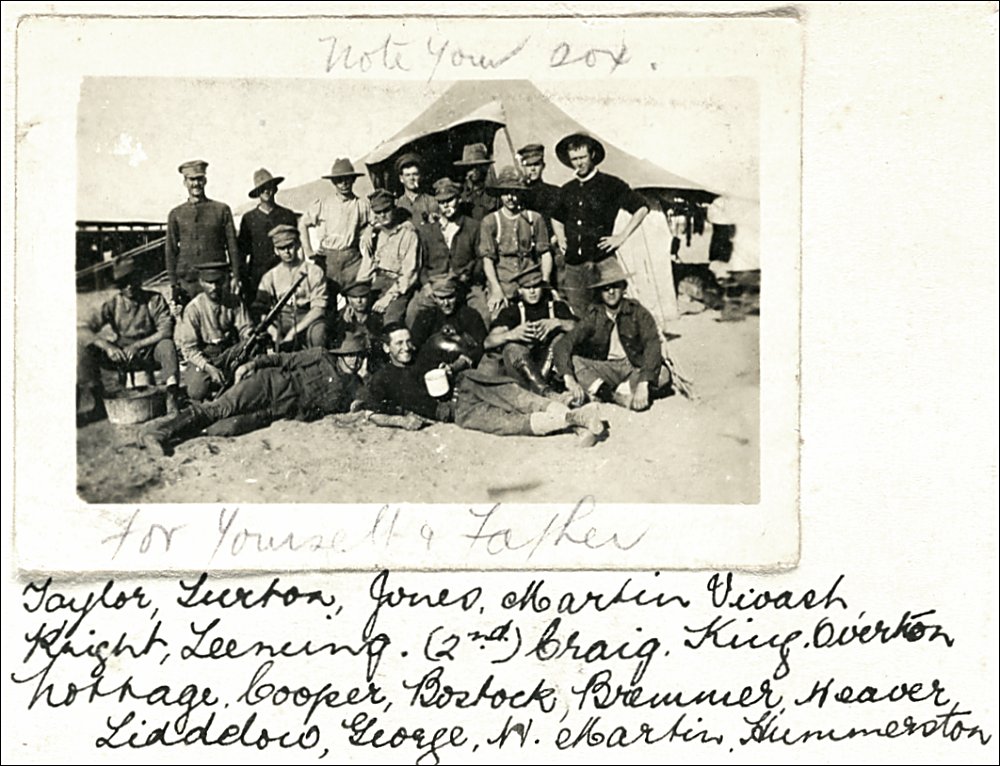 Note Your sox.
For Yourself & Father
Taylor, Lurton, Jones, Martin Vivash,
Knight, Leeming. (2nd.) Craig. King. Overton
Nottage. Cooper, Bostock, Bremmer, Weaver,
Liddelow, George, N. Martin, Hummerston